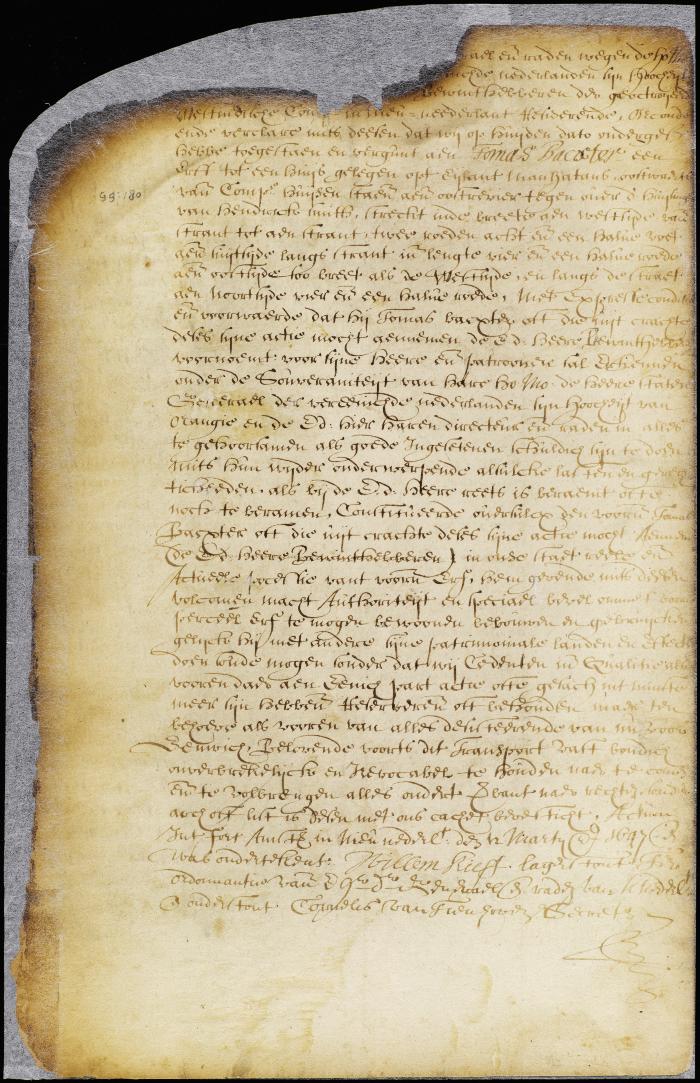 rael en raden wegen de
nichde nederlanden sijn hoocheijt
bewinthebberen der geoctroijeerde
Westindische Comp. in nieu-nederlant Resiederende, Oirconde
ende verclare mits desen dat wij op huijden dato ondergesz
hebbe toegestaen en vergunt aen Tomas Bacxter een
erff tot een huijs gelegen opt Eijlant Manhatans, oostwaerts
van Comps huijsen staen aen oostrevier tegen over d' huijsinge
van Hendrick Smith, streckt inde breete aen westsijde van
strant tot aen strant, twee roeden acht en een halve voet
aen suijtsijde langs strant in lengte vier en een halve roede
aen oostsijde soo breet als de Westsijde, en langs de straet
aen noortsijde vier en een halve roede, Met Expresse conditie
en voorwaerde dat hij Tomas bacxter, oft die uijt crachte
deses sijne actie mocht aennemen de E. d: heere bewinthebbers
voornoemt voor sijne heere en patroonen sal Erkennen
onder de Souveraniteijt van hare ho: Mo: de heere staten
Generael der vereenichde nederlanden sijn hoocheijt van
Orangie en de Ed: hier haren directeur en raden in alles
te gehoorsamen als goede Ingesetenen schuldich sijn te doen
mits hun wijder onderwerpende alsulcke lasten en gerech
ticheeden, als bij de E. d. heere reets is beraemt ofte
noch te beramen, Constitueerde oversulcx den voorn Tomas
Bacxter oft die uijt crachte deses sijne actie mocht Aennemen
(de Ed: heere Bewinthebberen) in onse staet reele en
Actueele possessie vant voorn Erf, hem gevende mits desen
volcomen macht Authoriteijt en speciael bevel omme t' voorn
perceel erf te mogen bewoonen bebouwen en gebruijcken
gelijck hij met andere sijne patrimoniale landen en effecte
doen soude mogen sonder dat wij Cedenten in qualite als
vooren daer aen Eenich part actie ofte gesach int minste
meer sijn hebben Reserveren oft behouden maer ten
behoeve als vooren van alles desisteerende van nu voor
Eeuwich, Belovende voorts dit Transport vast bondich
onverbreeckelijck en Revocabel te houden naer te comen
en te volbrengen alles ondert Verbant naer rechten,
arch oft list is desen met ons cachet bevesticht, Actum
Int fort Amsterdam in nieu nederlt: den 12 Marty Ao 1647
was onderteekent. Willem Kieft. lager stont ter
Ordonnantie van d' Hre Dr Generael en raden van N Nederlt
en onderstont Cornelis van Tienhoven Secrets
99:180